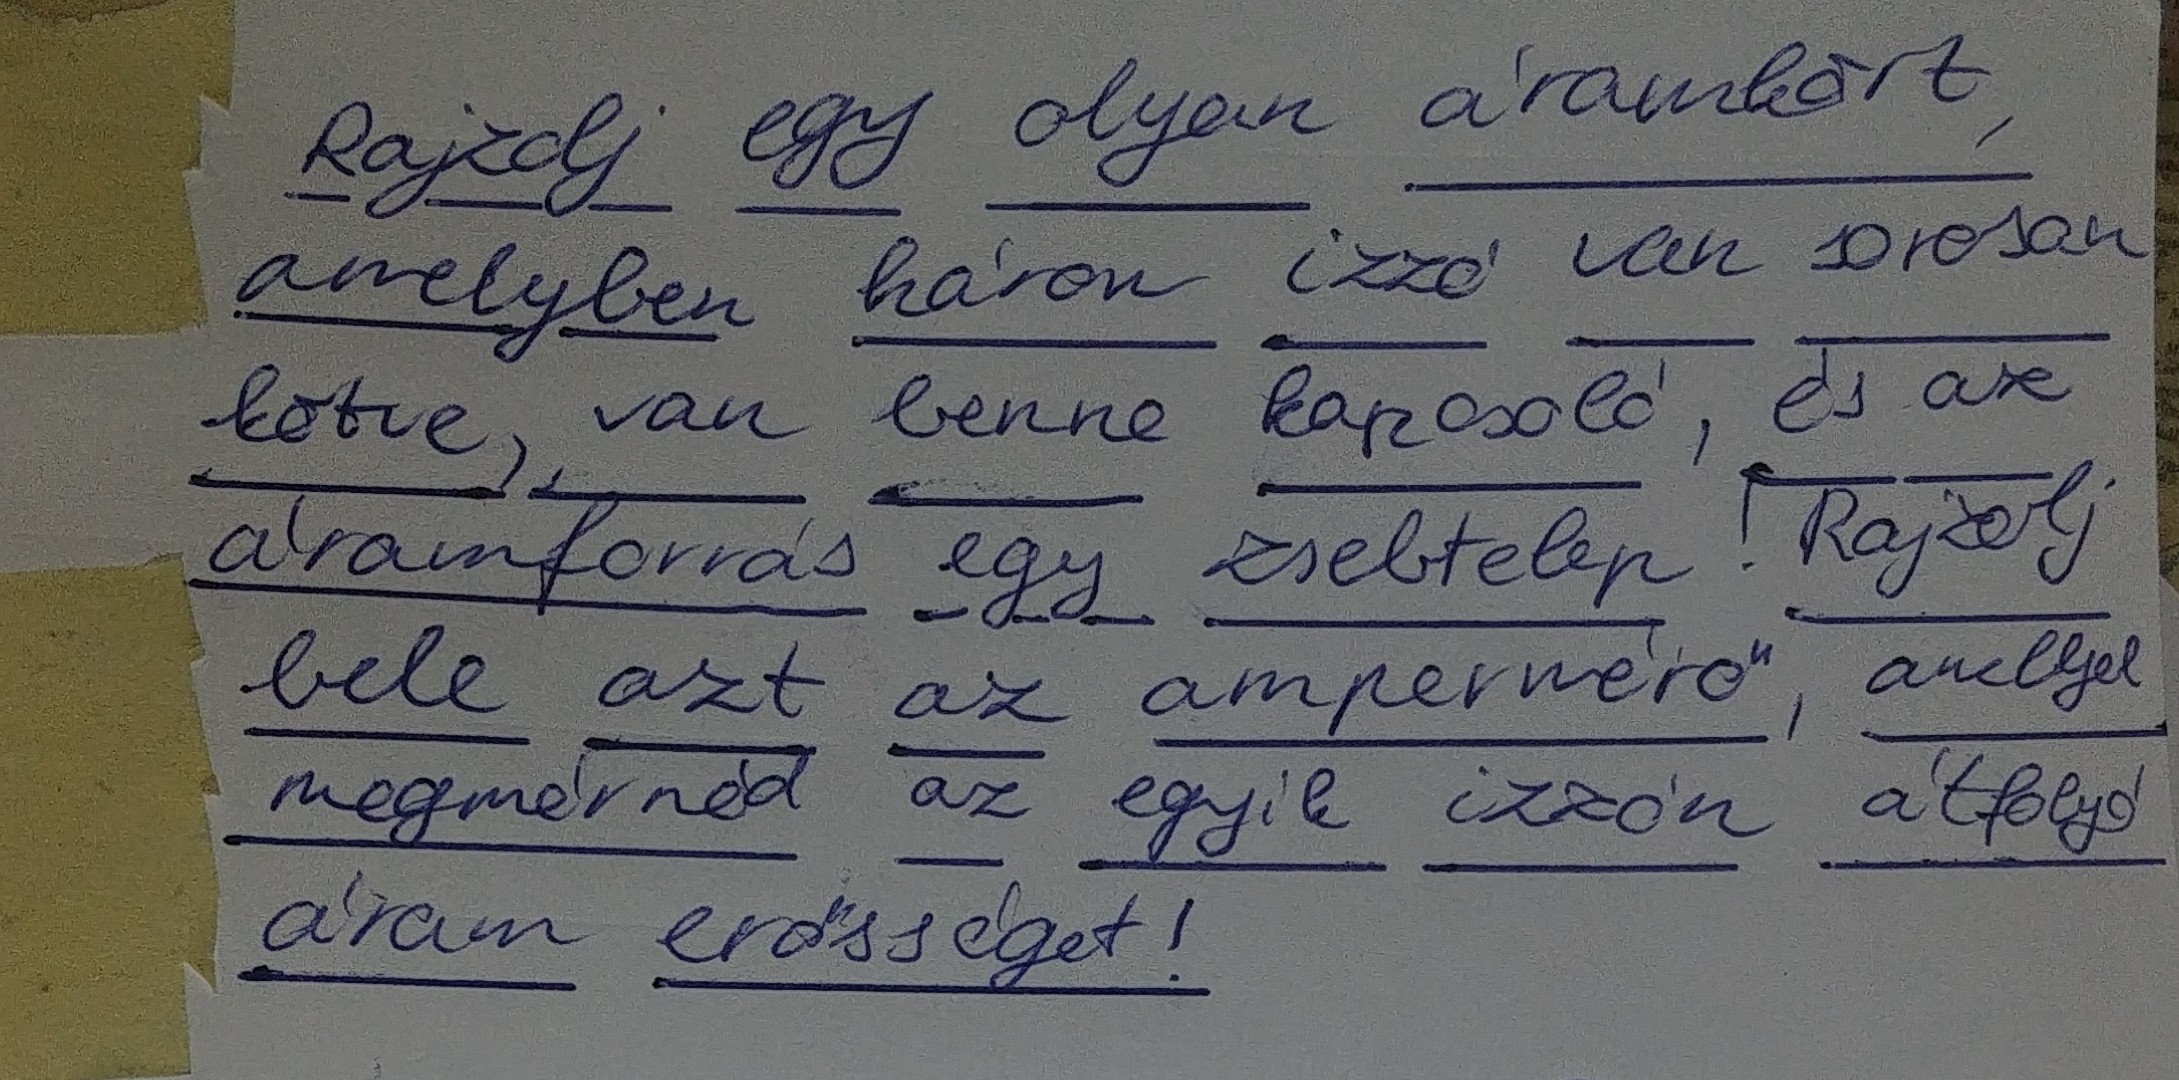 Rajzolj egy olyan áramkört,
amelyben három izzó van sorosan
kötve, van benne kapcsoló, és az
áramforrás egy zsebtelep! Rajzolj
bele azt az ampermérő, amellyel
megmérnéd az egyik izzón átfolyó
áram erősséget!